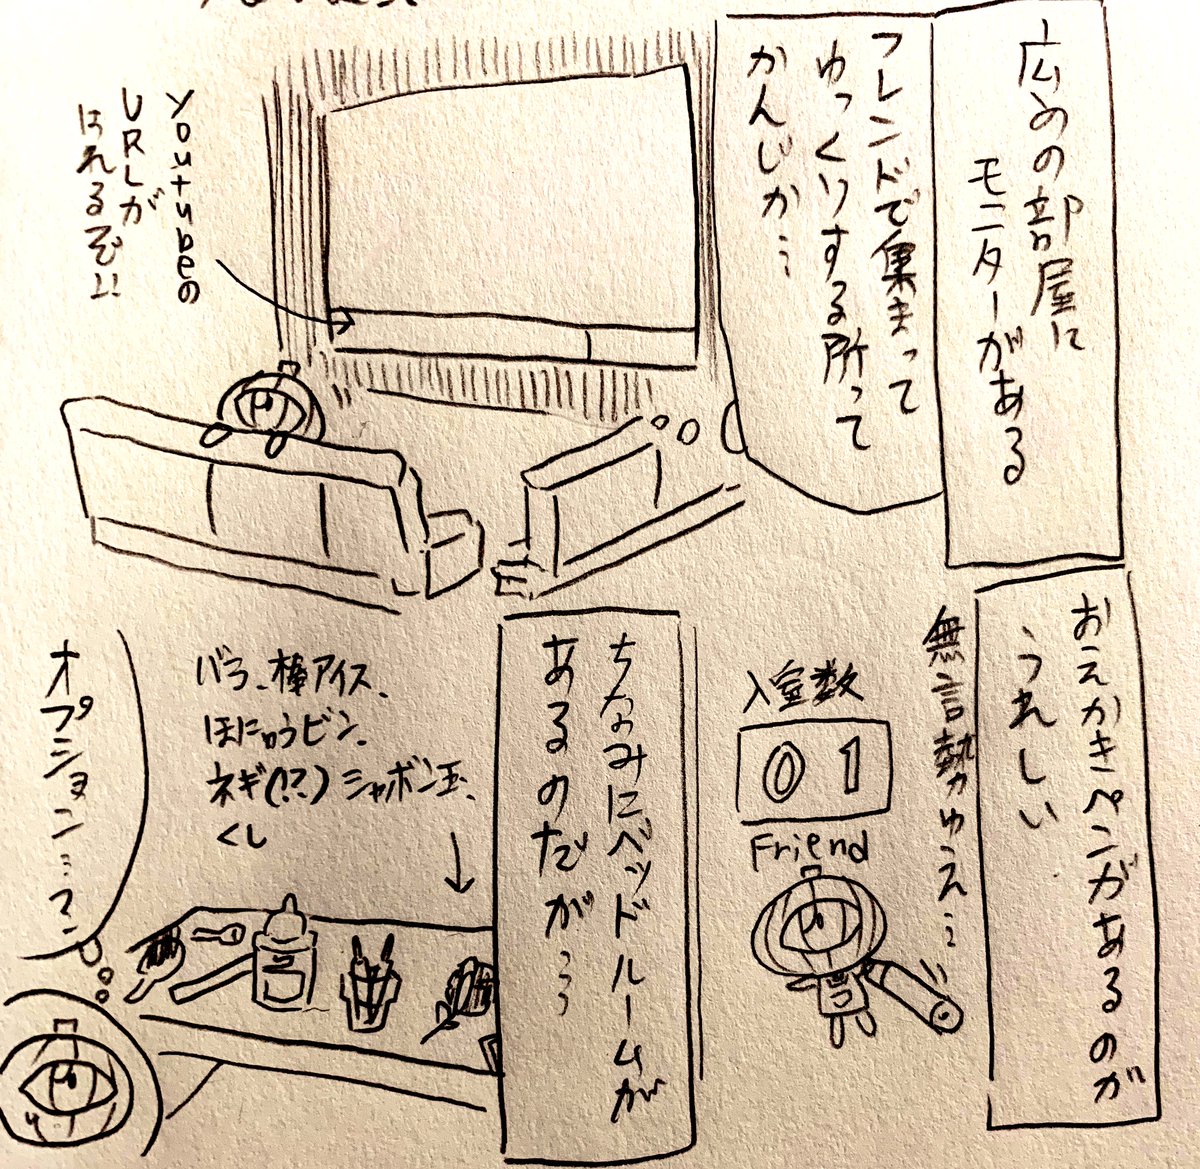 広めの部屋に
モニターがある
フレンドで集まって
ゆっくりする所って
かんじか…
youtubeの
URLが
はれるぞ!!
おえかきペンがあるのが
うれしい
無言勢ゆえ…
入室数
01
Friend
ちなみにベッドルームが
あるのだが…
バラ、棒アイス、
ほにゅうビン、
ネギ(!?)シャボン玉、
くし
オプション…?